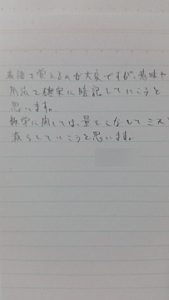 単語を覚えるのも大変ですが、意味や
用法を確実に暗記していこうと
思います。
数学に関しては、量をこなしてミスを
減らしていこうと思います。